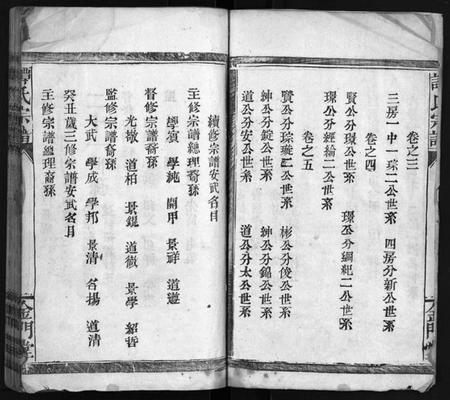 卷之三
三房一中一琮二公世系 四房分新公世系
卷之四
賢公分環公世系 環公分綱紀二公世系
環公分經綸二公世系
卷之五
賢公分琮璇二公世系 彬公分俊公世系
紳公分錠公世系 紳公分錫公世系
道公分安公世系 道公分太公世系
續修宗譜安武名目
主修宗譜總理裔孫
學賓 學純 開甲 景祥 道遵
督修宗譜裔孫
光墩 道柏 景錕 道徹 景學 紹哲
監修宗譜裔孫
大武 學成 學邦 景清 名揚 道清
癸丑歲三修宗譜安武名目
主修宗譜總理裔孫
譚氏宗譜
金門堂